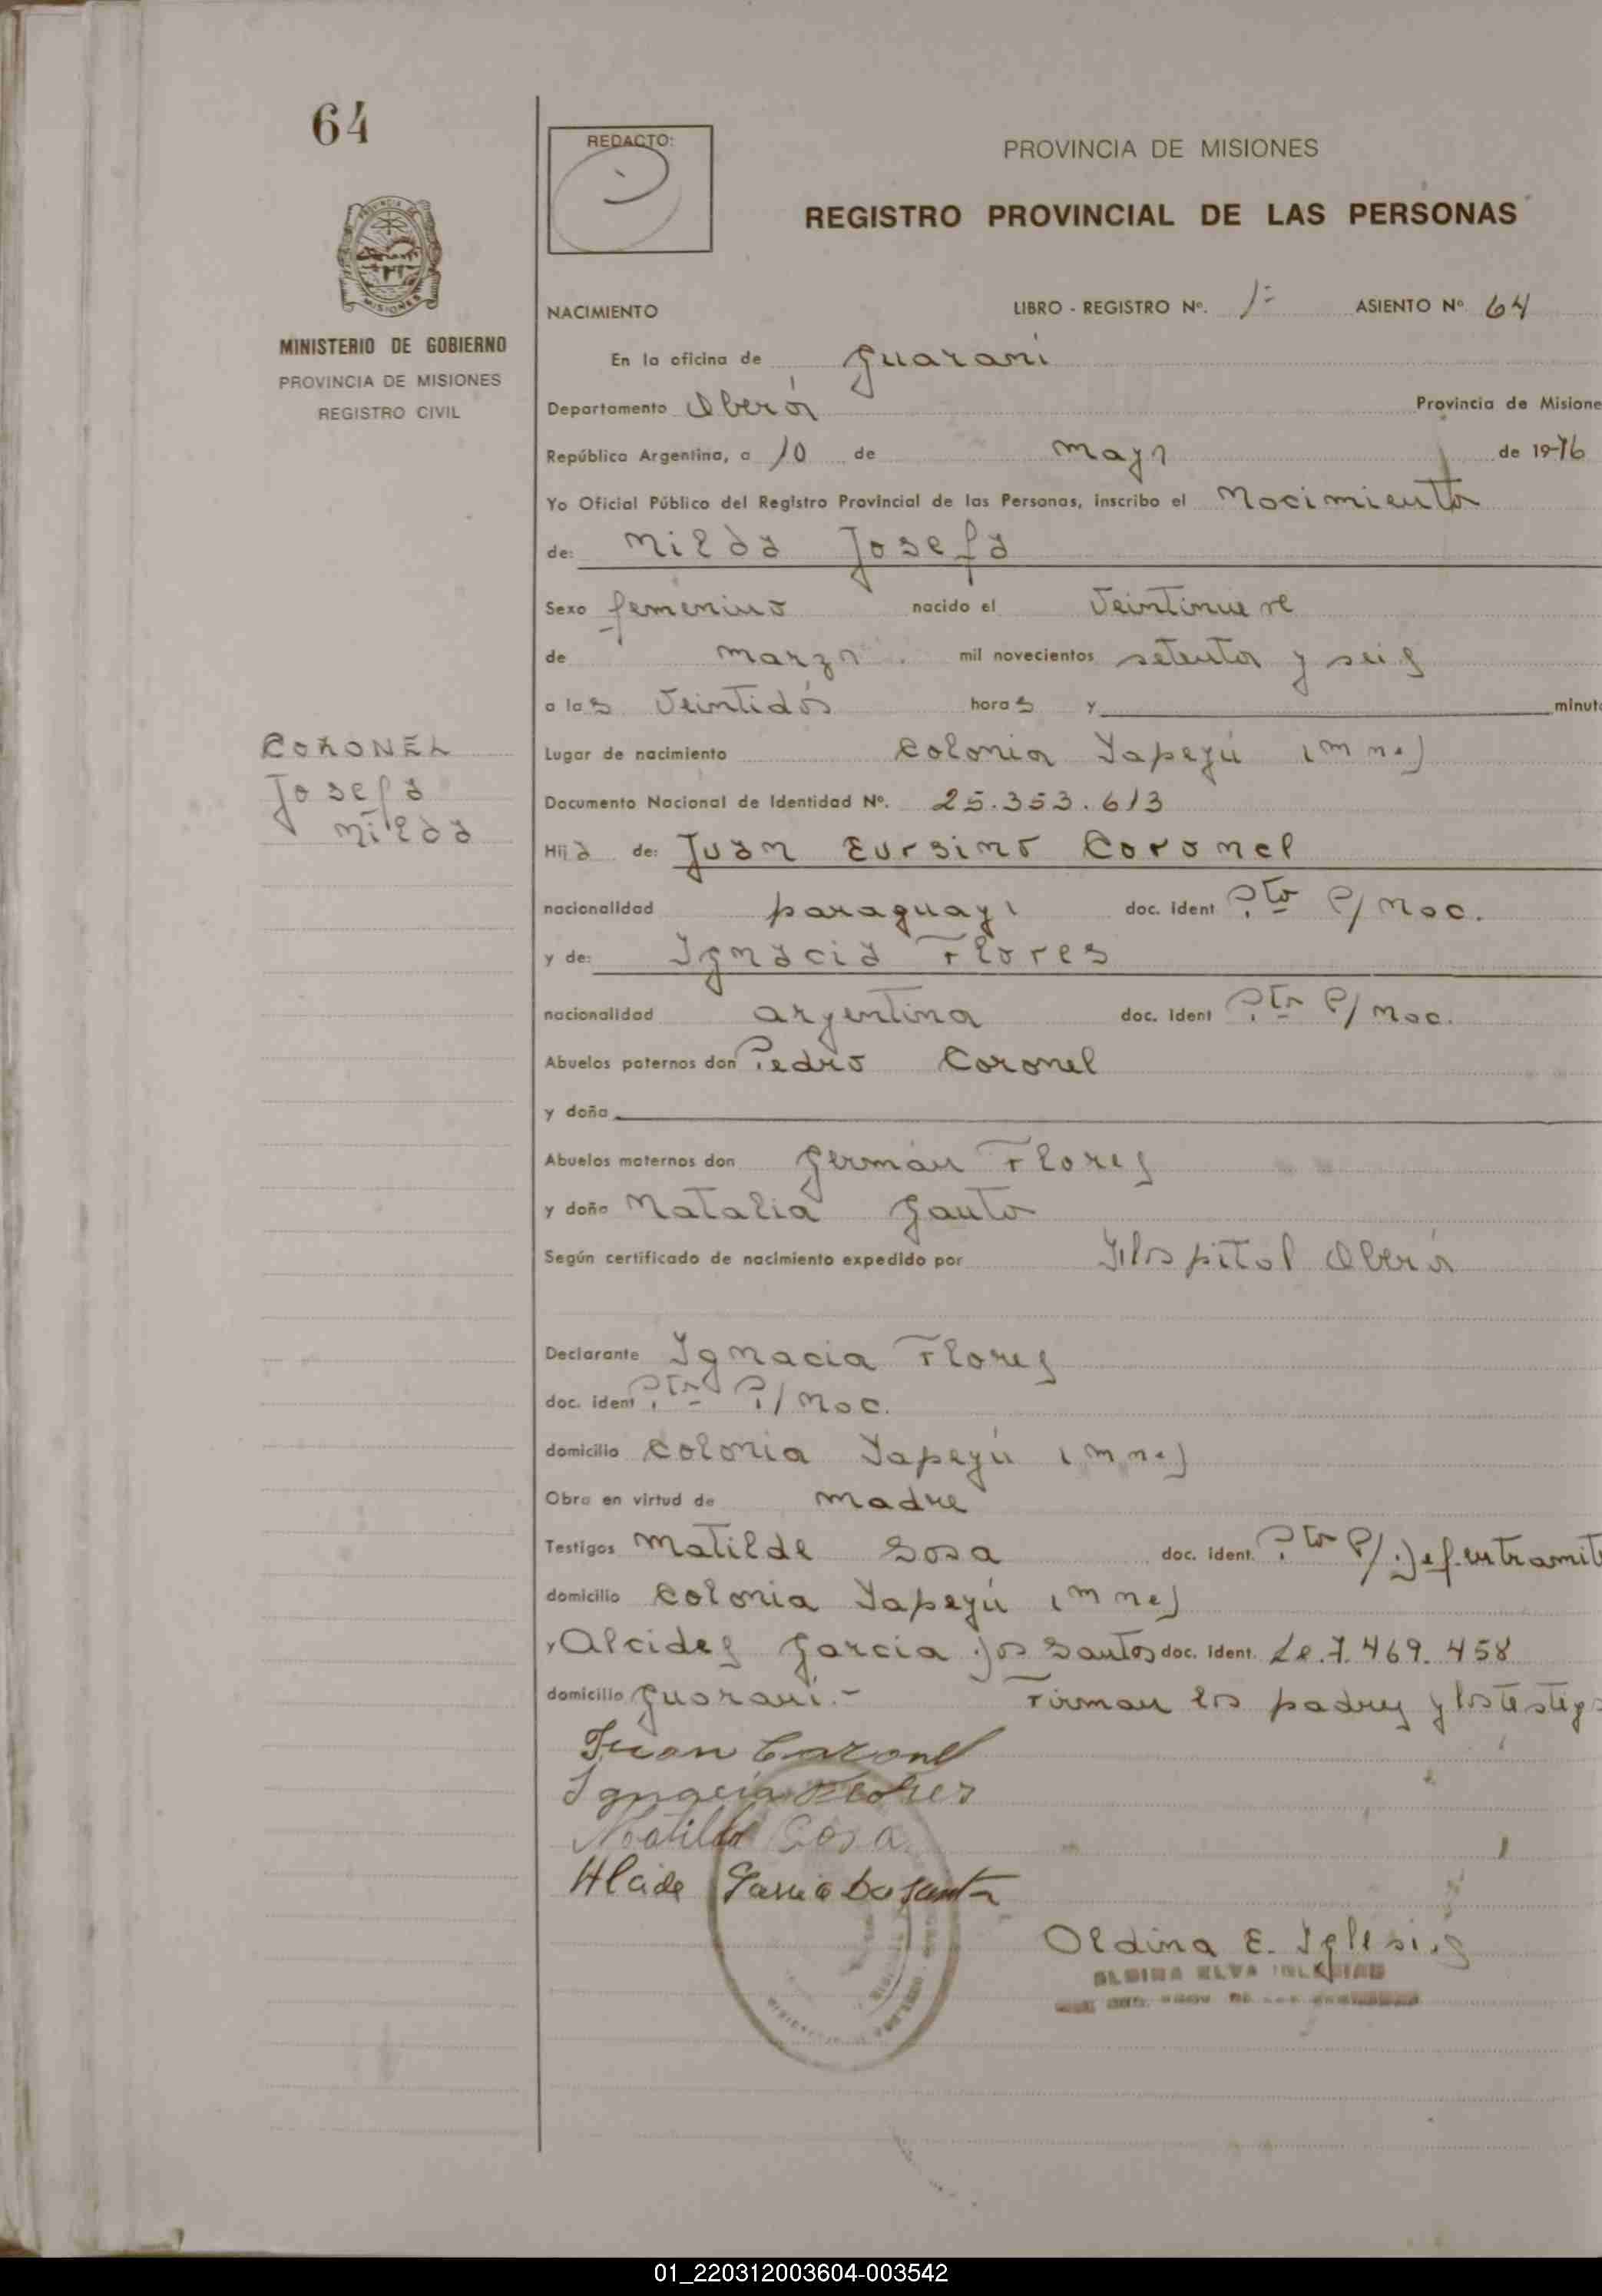 64
REDACTO:
PROVINCIA DE MISIONES
REGISTRO PROVINCIAL DE LAS PERSONAS
MINISTERIO DE GOBIERNO
PROVINCIA DE MISIONES
REGISTRO CIVIL
NACIMIENTO LIBRO - REGISTRO Nº. 1º ASIENTO Nº 64
En la oficina de Guaraní
Departamento Oberá Provincia de Misione
República Argentina, a 10 de mayo de 1976
Yo Oficial Público del Registro Provincial de las Personas, inscribo el Nacimiento
de: Milda Josefa
Sexo femenino nacido el Veintinueve
de marzo mil novecientos setenta y seis
a las Veintidós horas y minut
CORONEL
Josefa
Milda
Lugar de nacimiento Colonia Yapeyú (Mnes)
Documento Nacional de Identidad Nº. 25.353.613
Hija de: Juan Eursino Coronel
nacionalidad paraguayo doc. ident Pto P/ Nac.
y de: Ignacia Flores
nacionalidad argentina doc. ident Pto P/ Nac.
Abuelos paternos don Pedro Coronel
y doña
Abuelos maternos don Germán Flores
y doña Natalia Gauto
Según certificado de nacimiento expedido por Hospital Oberá
Declarante Ignacia Flores
doc. ident Pto P/ Nac.
domicilio Colonia Yapeyú (Mnes)
Obra en virtud de madre
Testigos Matilde Sosa doc. ident. Pto P/ Def. en tramit
domicilio Colonia Yapeyú (Mnes)
y Alcides Garcia dos Santos doc. ident. Le. 7.469.458
domicilio Guaraní.- Firman los padres y los testigo
Juan Coronel
Ignacia Flores
Matilde Sosa
Alcide Garcia Do Santo
Oldina E. Iglesias
01_220312003604-003542